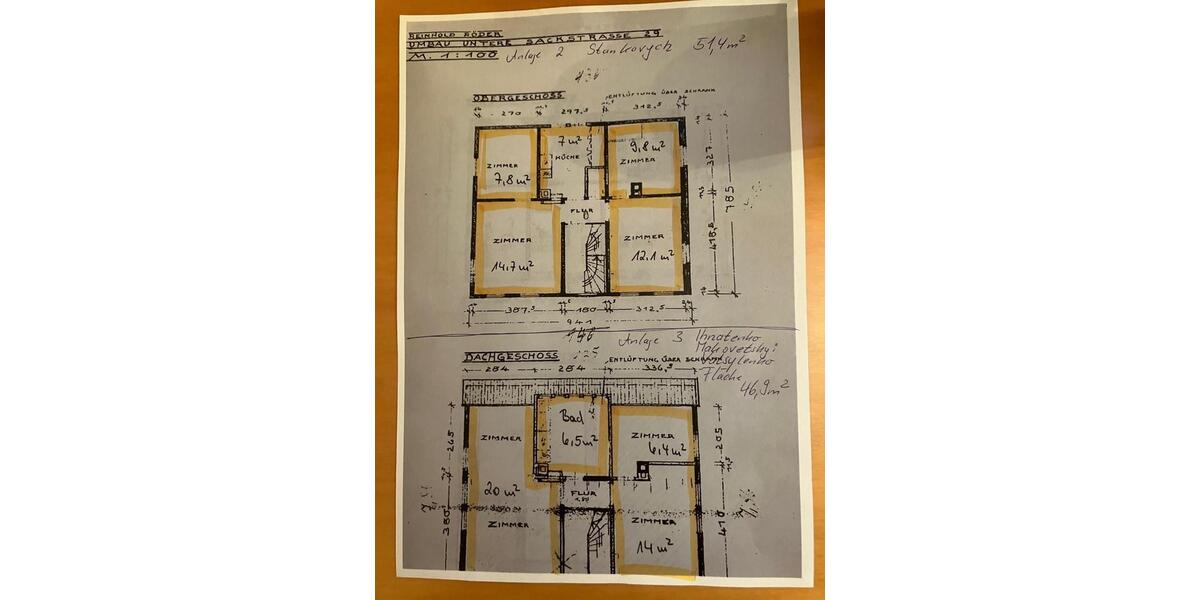 REINHOLD RÖDER
UMBAU UNTERE SACKSTRASSE 29
M. 1:100 Anlage 2 Stankovych 51,4 m²
OBERGESCHOSS
ENTLÜFTUNG ÜBER SCHRANK
270 297,5 312,5
7 m²
KÜCHE
9,8 m²
ZIMMER
ZIMMER
7,8 m²
327
785
FLUR
ZIMMER
ZIMMER
14,7 m²
12,1 m²
418,5
387,5 180 312,5
941
Anlage 3 Ihnatenko
Makovetskyi
Fläche
46,9 m²
DACHGESCHOSS
ENTLÜFTUNG ÜBER SCHRANK
284 284 336,5
Bad
6,5 m²
ZIMMER
ZIMMER
6,4 m²
265
205
20 m²
FLUR
ZIMMER
ZIMMER
14 m²
380
410